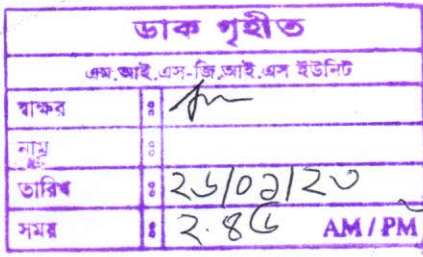 ডাক গৃহীত
এম.আই.এস-জি.আই.এস ইউনিট
স্বাক্ষর ঃ
নাম ঃ
তারিখ ঃ
সময় ঃ ২.৪৫ AM / PM